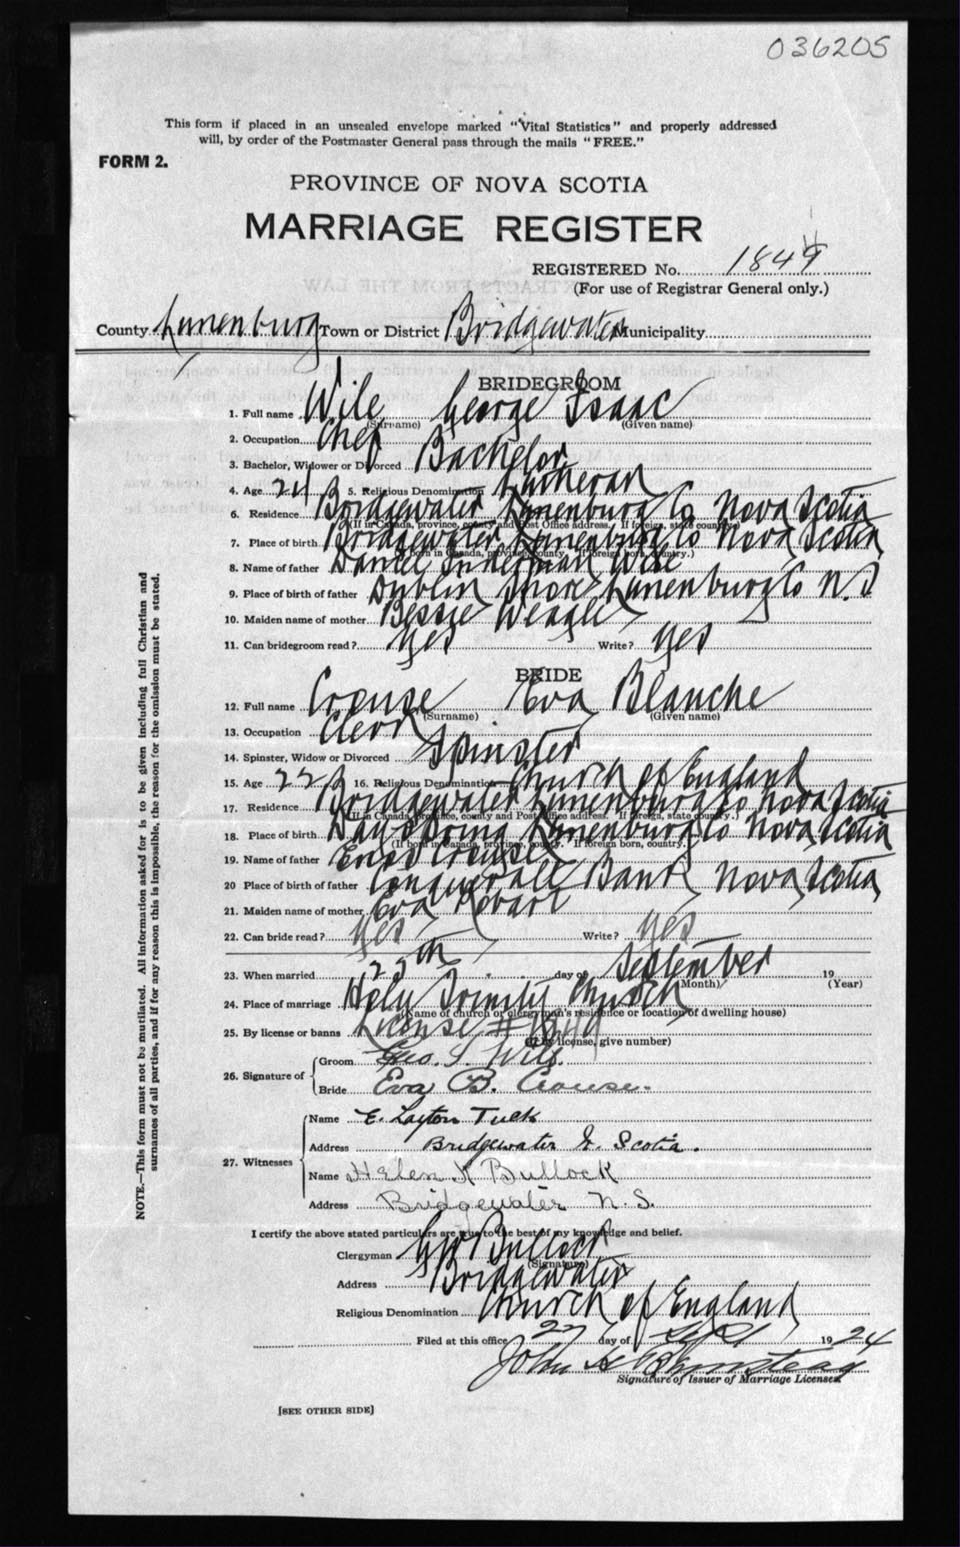 036205
This form if placed in an unsealed envelope marked "Vital Statistics" and properly addressed
will, by order of the Postmaster General pass through the mails "FREE."
FORM 2.
PROVINCE OF NOVA SCOTIA
MARRIAGE REGISTER
REGISTERED No. 1849
(For use of Registrar General only.)
County Lunenburg Town or District Bridgewater Municipality
BRIDEGROOM
1. Full name Wile George Isaac
(Surname) (Given name)
2. Occupation Chef
3. Bachelor, Widower or Divorced Bachelor
4. Age 24 5. Religious Denomination Lutheran
6. Residence Bridgewater Lunenburg Co Nova Scotia
(If in Canada, province, county and Post Office address. If foreign, state country.)
7. Place of birth Bridgewater Lunenburg Co Nova Scotia
(If born in Canada, province, county. If foreign born, country.)
8. Name of father Daniel Wile
9. Place of birth of father Dublin Shore Lunenburg Co N.S
10. Maiden name of mother Bessie Weagle
11. Can bridegroom read? Yes Write? Yes
BRIDE
12. Full name Crouse Eva Blanche
(Surname) (Given name)
13. Occupation Clerk
14. Spinster, Widow or Divorced Spinster
15. Age 22 16. Religious Denomination Church of England
17. Residence Bridgewater Lunenburg Co Nova Scotia
(If in Canada, province, county and Post Office address. If foreign, state country.)
18. Place of birth Dayspring Lunenburg Co Nova Scotia
(If born in Canada, province, county. If foreign born, country.)
19. Name of father Enos Crouse
20 Place of birth of father Conquerall Bank Nova Scotia
21. Maiden name of mother Eva
22. Can bride read? Yes Write? Yes
23. When married 25th day of September 19
(Month) (Year)
24. Place of marriage Holy Trinity Church
(Name of church or clergyman's residence or location of dwelling house)
25. By license or banns License # 1849
(If by license, give number)
26. Signature of
Groom Geo. I. Wile.
Bride Eva B. Crouse.
27. Witnesses
Name E. Layton Tuck
Address Bridgewater N. Scotia.
Name Helen K Bullock
Address Bridgewater N.S.
I certify the above stated particulars are true to the best of my knowledge and belief.
Clergyman GW Bullock
(Signature)
Address Bridgewater
Religious Denomination Church of England
Filed at this office 27 day of Sept 1924
John H
Signature of Issuer of Marriage Licenses
[SEE OTHER SIDE]
NOTE.—This form must not be mutilated. All information asked for is to be given including full Christian and
surnames of all parties, and if for any reason this is impossible, the reason for the omission must be stated.